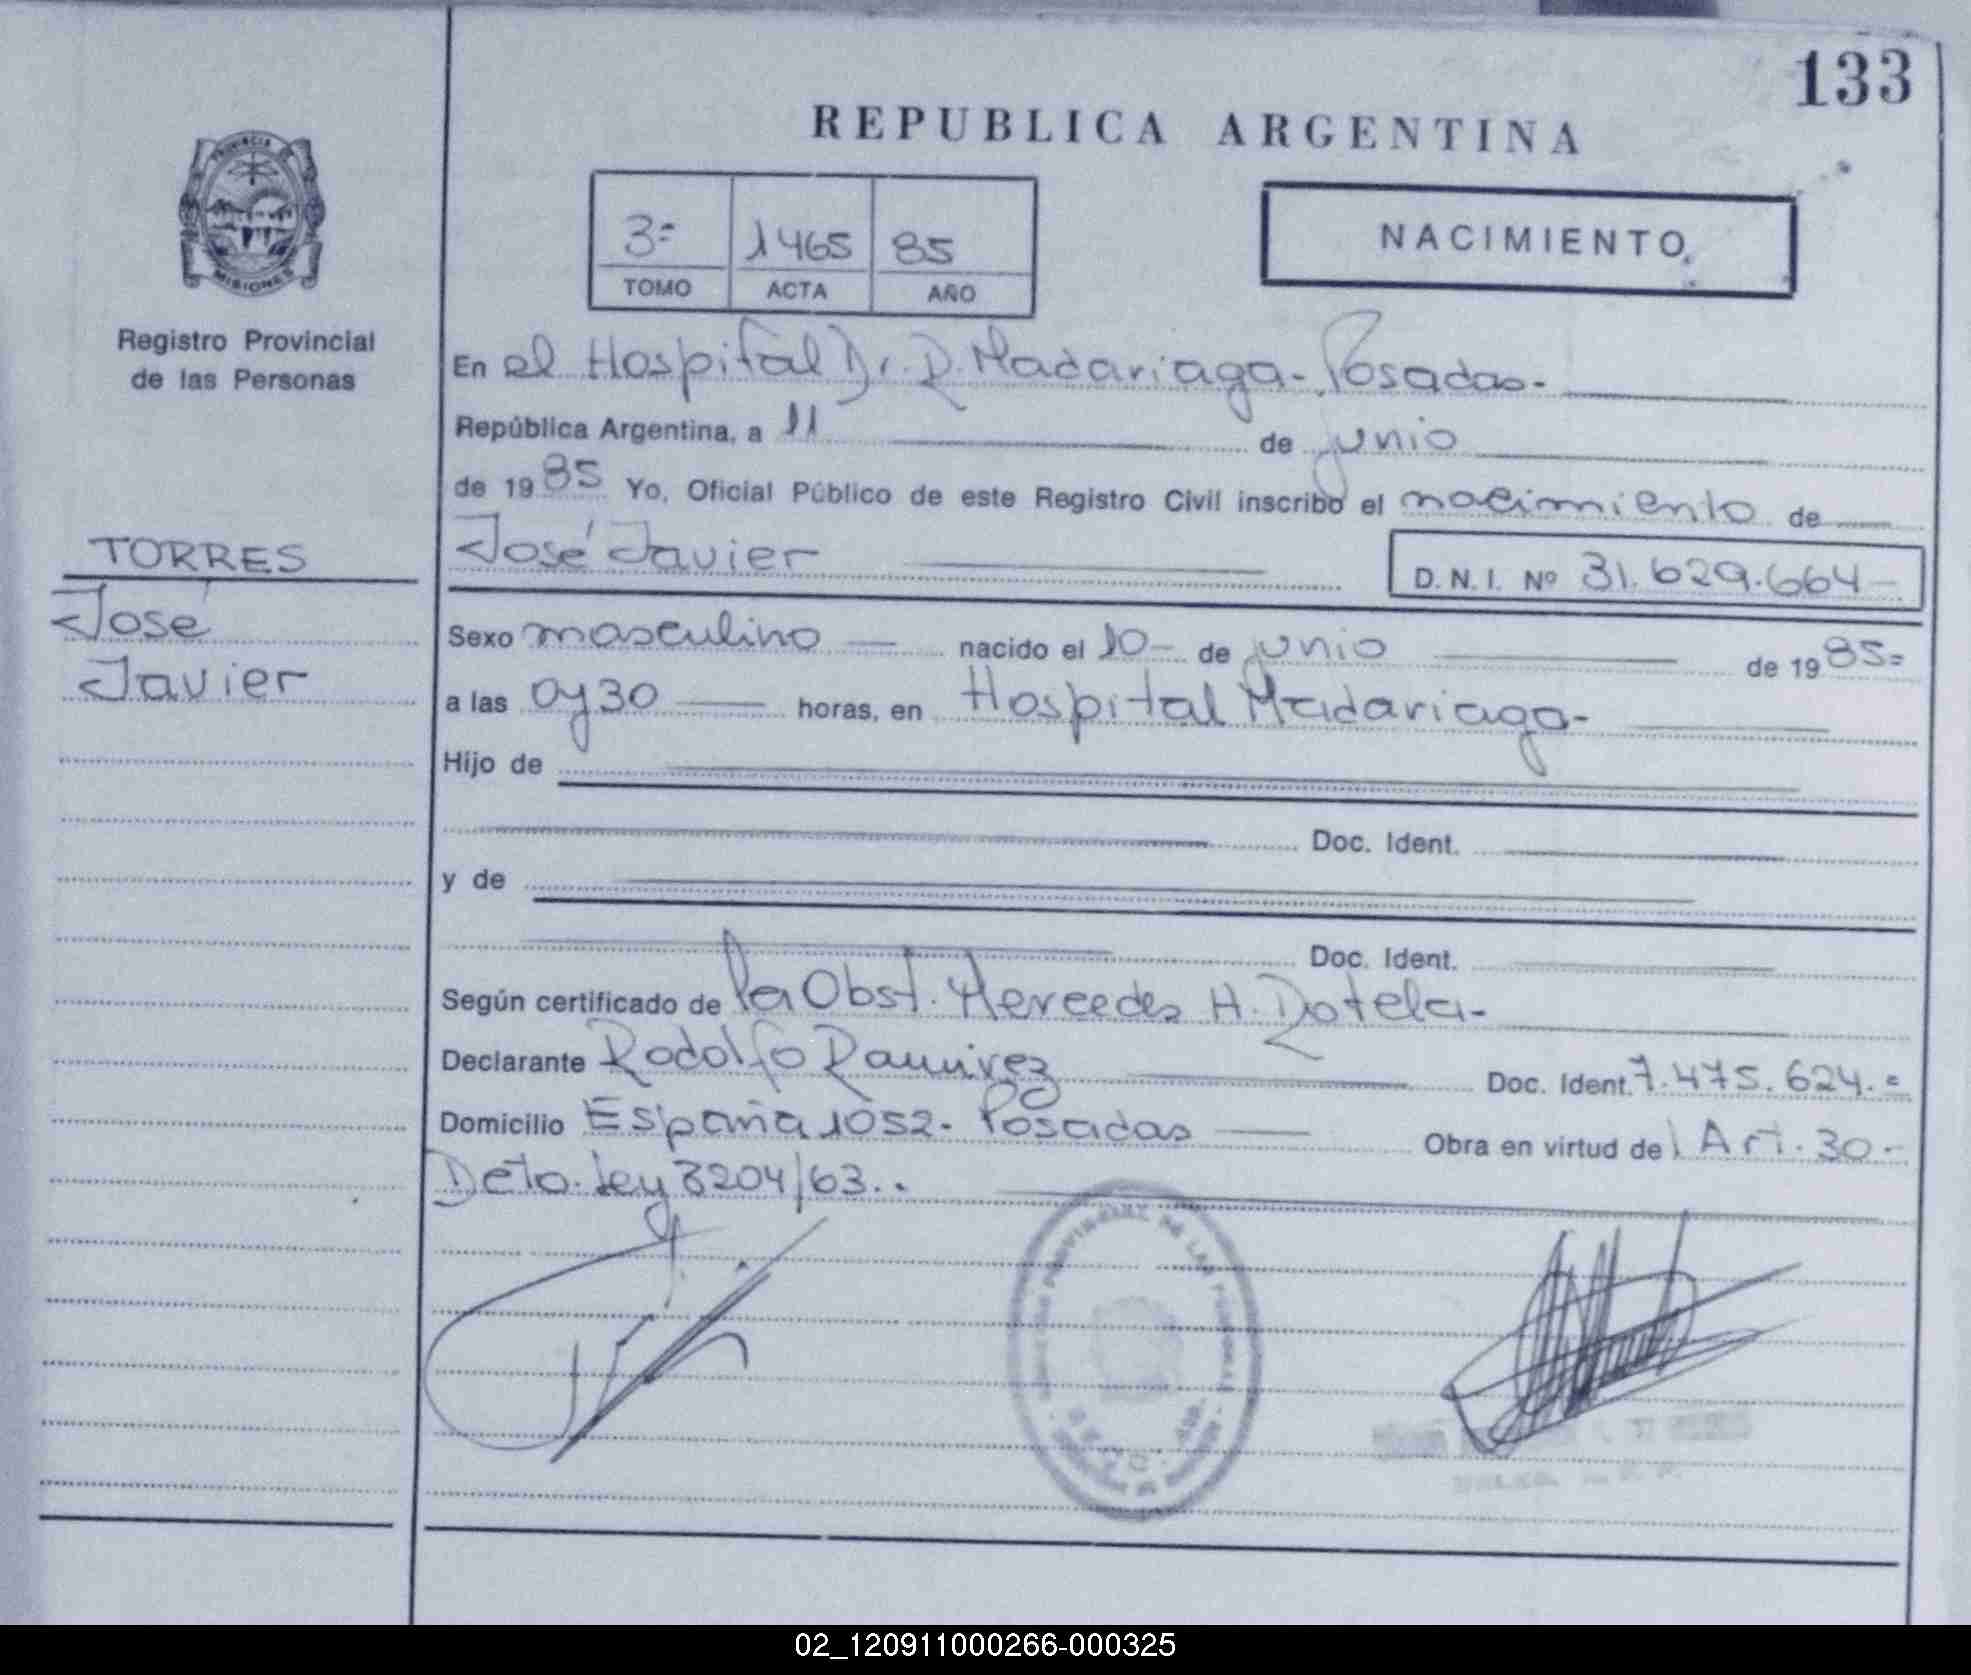 133
REPUBLICA ARGENTINA
PROVINCIA DE
MISIONES
Registro Provincial
de las Personas
3=
1465
85
TOMO
ACTA
AÑO
NACIMIENTO
En el Hospital Dr. R. Madariaga - Posadas -
República Argentina, a 11 de junio
de 1985 Yo, Oficial Público de este Registro Civil inscribo el nacimiento de
TORRES
José
Javier
José Javier
D.N.I. Nº 31.629.664 -
Sexo masculino nacido el 10 - de junio de 1985=
a las 0y30 horas, en Hospital Madariaga -
Hijo de
Doc. Ident.
y de
Doc. Ident.
Según certificado de la Obst. Mercedes H. Dotela -
Declarante Rodolfo Ramirez Doc. Ident. 7.475.624.=
Domicilio España 1052 - Posadas Obra en virtud del Art. 30 -
Deto. Ley 8204/63..
DE LAS PERSONAS
02_120911000266-000325